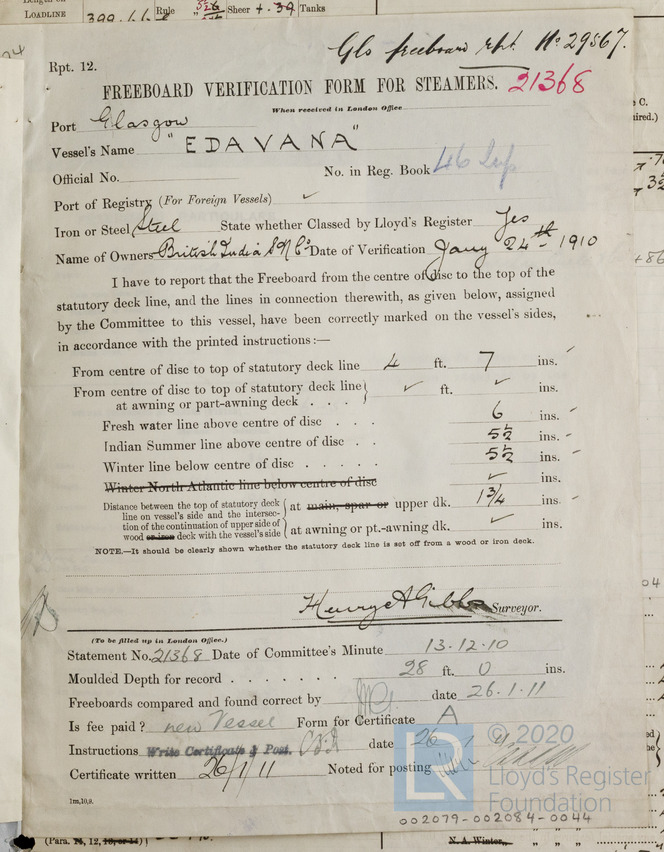 LOADLINE 399.66 Rule Sheer + .39 Tanks
Gls freeboard rpt. No. 29567.
Rpt. 12.
FREEBOARD VERIFICATION FORM FOR STEAMERS. 21368
When received in London Office
Port Glasgow
Vessel's Name "EDAVANA"
Official No. No. in Reg. Book 46 Sup
Port of Registry (For Foreign Vessels) ✓
Iron or Steel Steel State whether Classed by Lloyd's Register Yes
Name of Owners British India S N Co Date of Verification Jany 24th 1910
I have to report that the Freeboard from the centre of disc to the top of the
statutory deck line, and the lines in connection therewith, as given below, assigned
by the Committee to this vessel, have been correctly marked on the vessel's sides,
in accordance with the printed instructions:—
From centre of disc to top of statutory deck line 4 ft. 7 ins.
From centre of disc to top of statutory deck line ✓ ft. ✓ ins.
at awning or part-awning deck . . .
Fresh water line above centre of disc . . . 6 ins.
Indian Summer line above centre of disc . . 5½ ins.
Winter line below centre of disc . . . . . 5½ ins.
Winter North Atlantic line below centre of disc ✓ ins.
Distance between the top of statutory deck
line on vessel's side and the intersec- at main, spar or upper dk. 1¾ ins.
tion of the continuation of upper side of
wood or iron deck with the vessel's side at awning or pt.-awning dk. ✓ ins.
NOTE.—It should be clearly shown whether the statutory deck line is set off from a wood or iron deck.
Henry A Gibbs Surveyor.
(To be filled up in London Office.)
Statement No. 21368 Date of Committee's Minute 13.12.10
Moulded Depth for record . . . . . . . 28 ft. 0 ins.
Freeboards compared and found correct by date 26.1.11
Is fee paid? new Vessel Form for Certificate A
Instructions Write Certificate & Post. date 26 1
Certificate written 26/1/11 Noted for posting
1m,10,9.
LR © 2020
Lloyd's Register
Foundation
002079-002084-0044
(Para. 11, 12,
N. A. Winter,